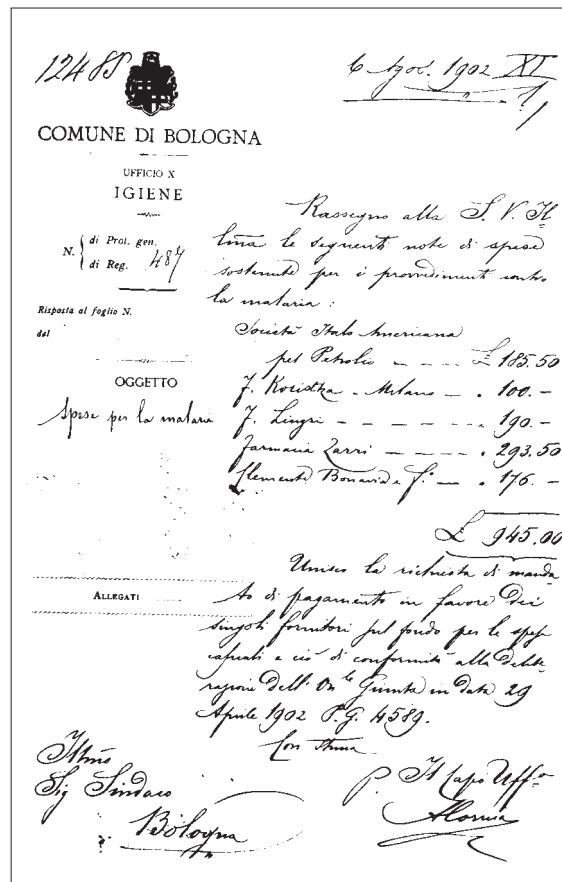 12485
6 Agos. 1902 XI
1
COMUNE DI BOLOGNA
UFFICIO X
IGIENE
N. { di Prot. gen.
di Reg. 487
Risposta al foglio N.
del
OGGETTO
Spese per la malaria
ALLEGATI
Rassegno alla S. V. Il
lma le seguenti note di spese
sostenute per i provvedimenti contro
la malaria:
Società Italo Americana
pel Petrolio - - - - £ 185.50
J. - Milano - . 100.-
J. - - - - - - . 190.-
Farmacia Zarri - - - - . 293.50
Clemente Bonavia e F.i - . 176.-
£ 945.00
Unisco la richiesta di manda
to di pagamento in favore dei
singoli fornitori sul fondo per le spese
casuali e ciò di conformità alla delibe
razione dell' On.le Giunta in data 29
Aprile 1902 P.G. 4589.
Con stima
p. Il Capo Uff.o
Illmo
Sig Sindaco
Bologna